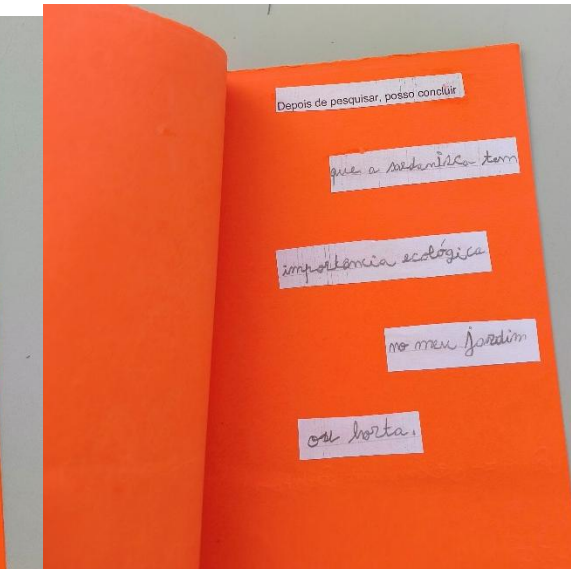 Depois de pesquisar, posso concluir
que a sardanisca tem
importância ecológica
no meu jardim
ou horta.